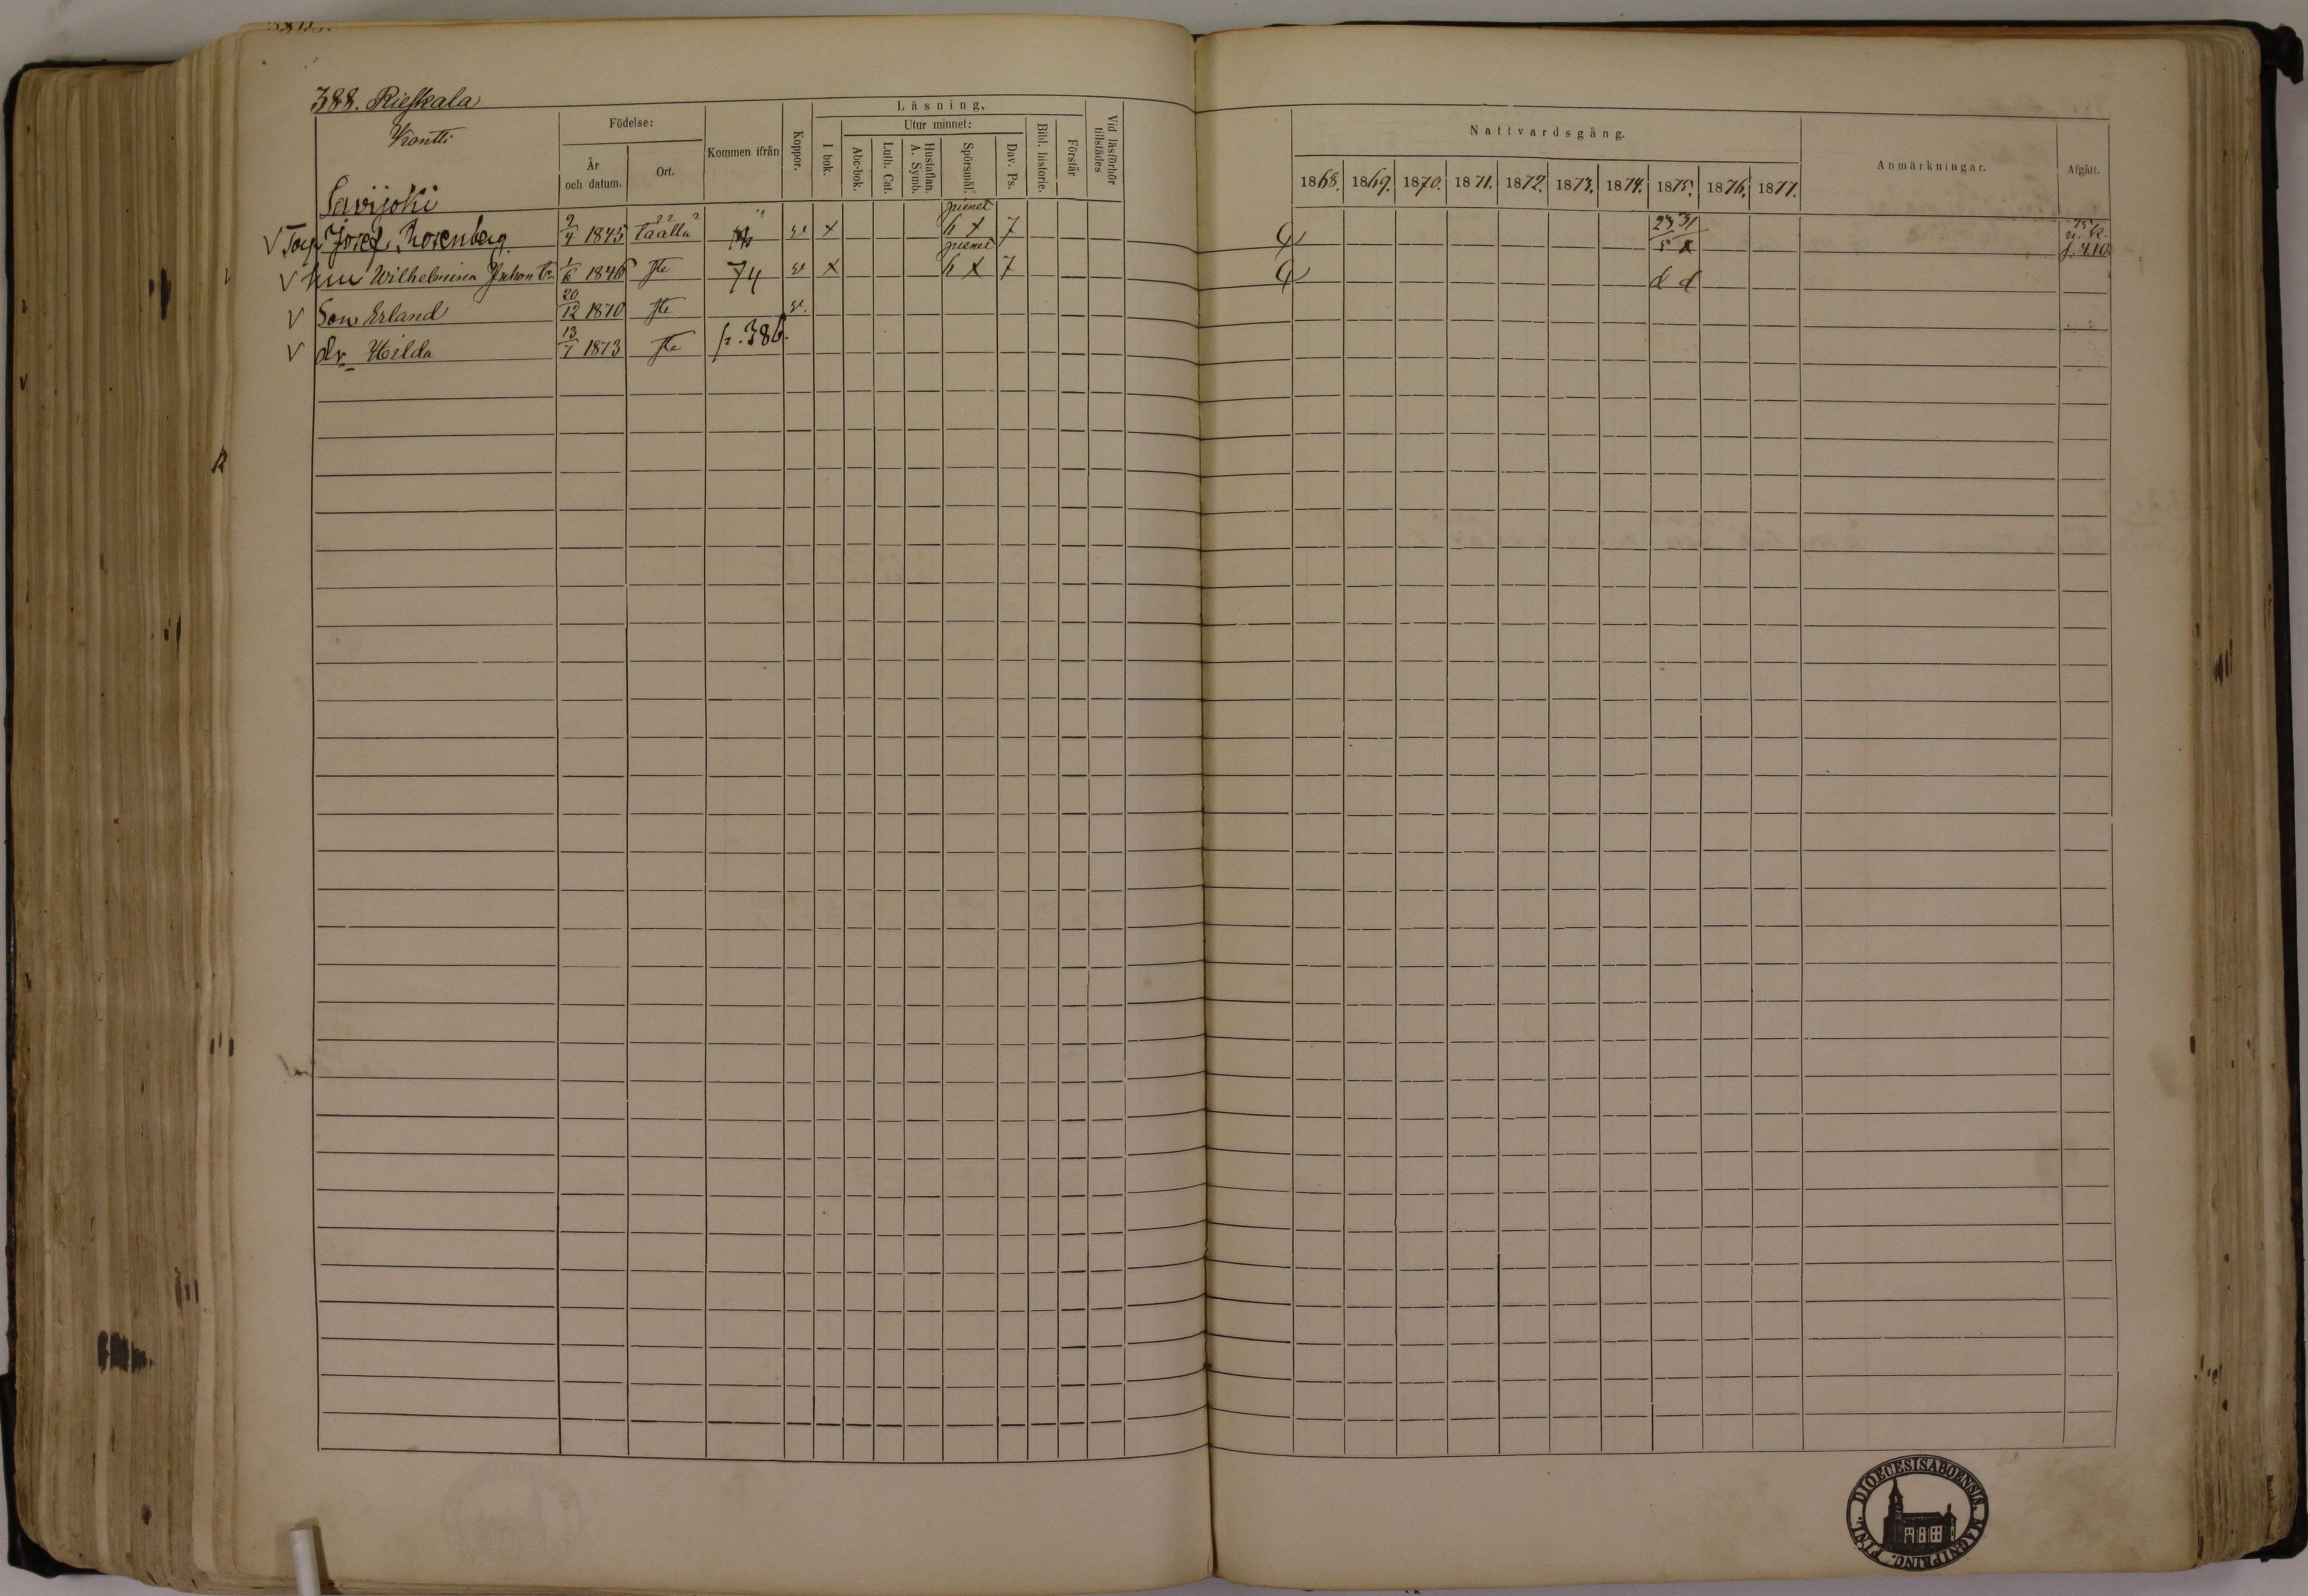 388. Rieskala
Krontti
Födelse:
År
och datum.
Ort.
Kommen ifrån
Koppor.
Läsning,
I bok.
Utur minnet:
Abc-bok.
Luth. Cat.
Hustaflan.
A. Symb.
Spörsmål.
Dav. Ps.
Bibl. historie.
Förstår
Vid läsförhör
tillstädes
Nattvardsgång.
1868. 1869. 1870. 1871. 1872. 1873. 1874. 1875. 1876. 1877.
Anmärkningar.
Afgått.
Savijoki
Torp. Josef Rosenberg 2/4 1845 täällä x pienet x 7 23/5 31/x f. 410
Wilhelmina 1/6 1846 74 x pienet x 7 d d
Son Erland 20/12 1870
dr Hilda 13/7 1873 p. 386.
DIOECESIS ABOENSIS. MAGNI PRINC. FINL.